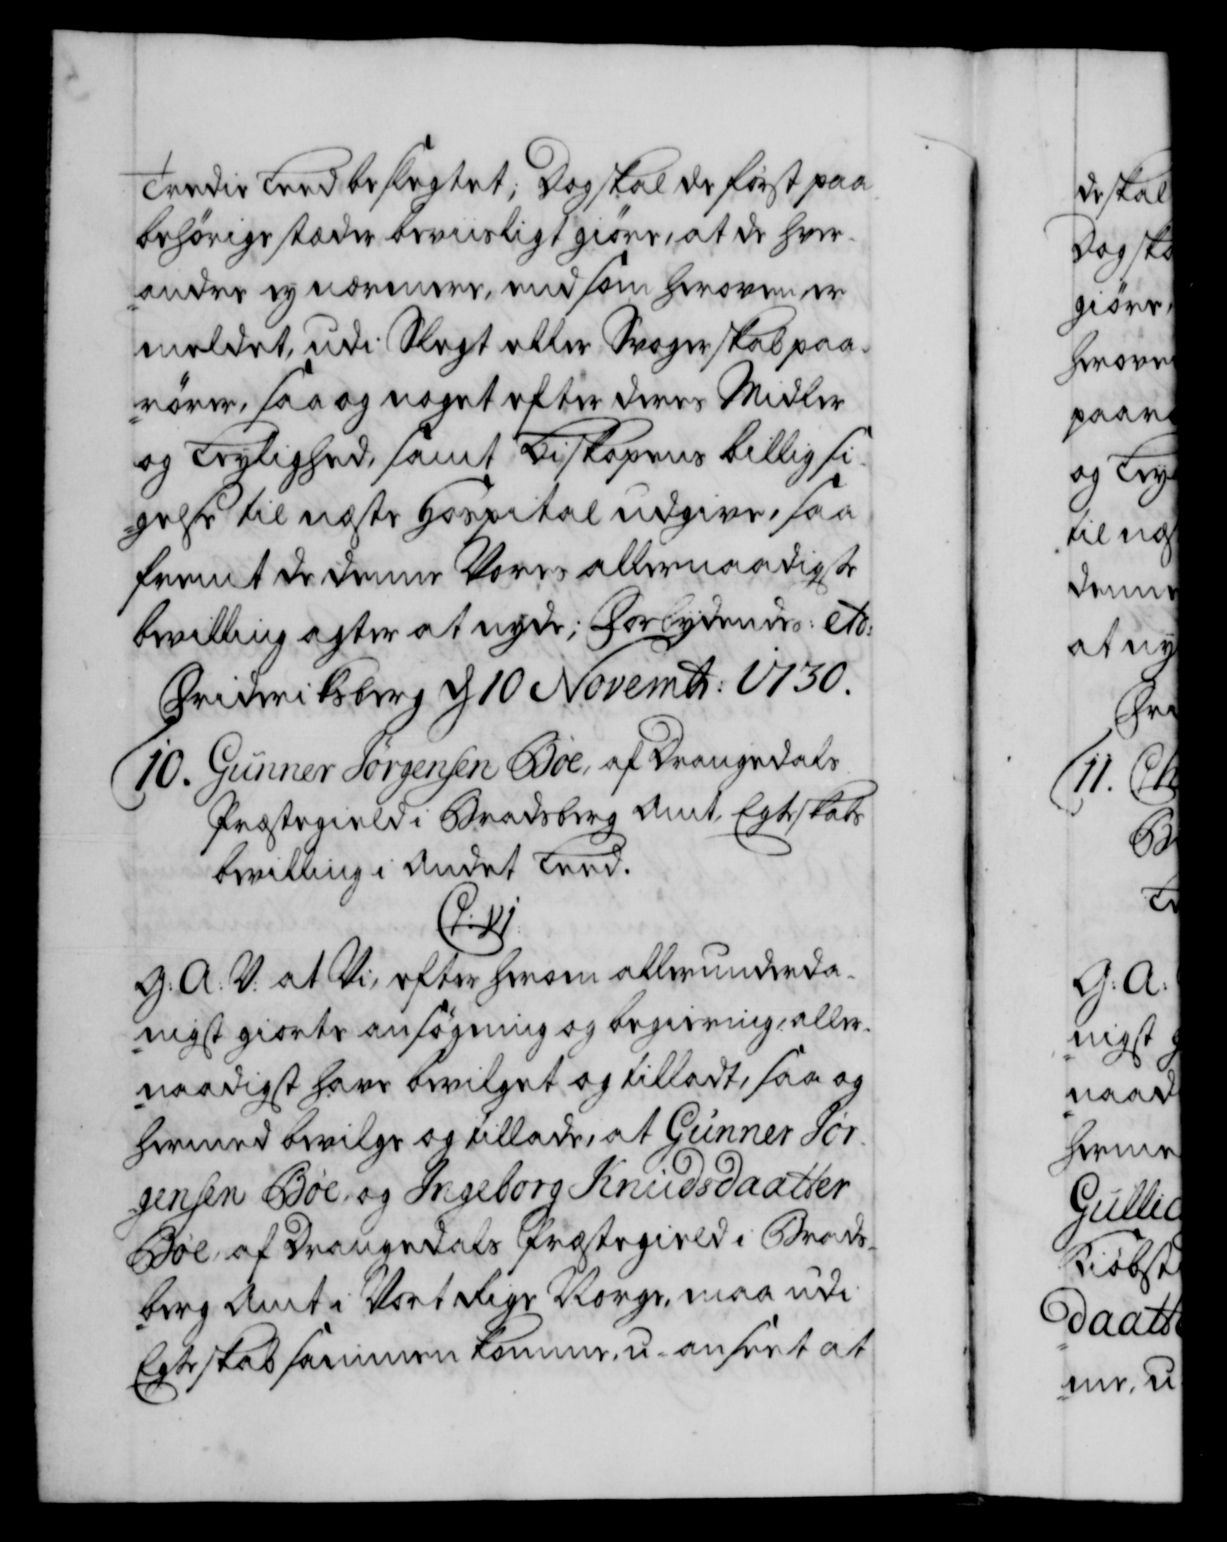 Tredie Leed beslegtet; Dog skal de först paa
behörige stæder beviisligt giöre, at de hver-
andre ey nærmere, end som heroven er
meldet, udi Slegt eller Svogerskab paa-
rörer, saa og noget efter deres Midler
og Leylighed, samt Biskopens billig si-
gelse til næste Hospital udgive, saa
fremt de denne Vores allernaadigste
bevilling agter at nyde; Forbydendes: etc:
Friderichsberg d 10 Novembr: 1730.
10. Gunner Jörgensen Böe, af Drangedals
Præstegield i Bradsberg Amt, Egteskabs
bevilling i Andet Leed.
C: VI
G. A. V. at Vi, efter herom allerunderda-
nigst giorte ansögning og begiering, aller-
naadigst have bevilget og tilladt, saa og
hermed bevilge og tillade, at Gunner Jör-
gensen Böe, og Ingeborg Knudsdaatter
Böe, af Drangedals Præstegield i Brads-
berg Amt i Vort Rige Norge, maa udi
Egteskab sammen komme, u-anseet at
de skal
Dog ska
giöre,
herove
paarö
og Ley
til næs
denne
at ny
Fri
11. Ch
Br
Le
G: A:
nigst g
naad
herme
Gullic
Kiöbst
daatt
me, u